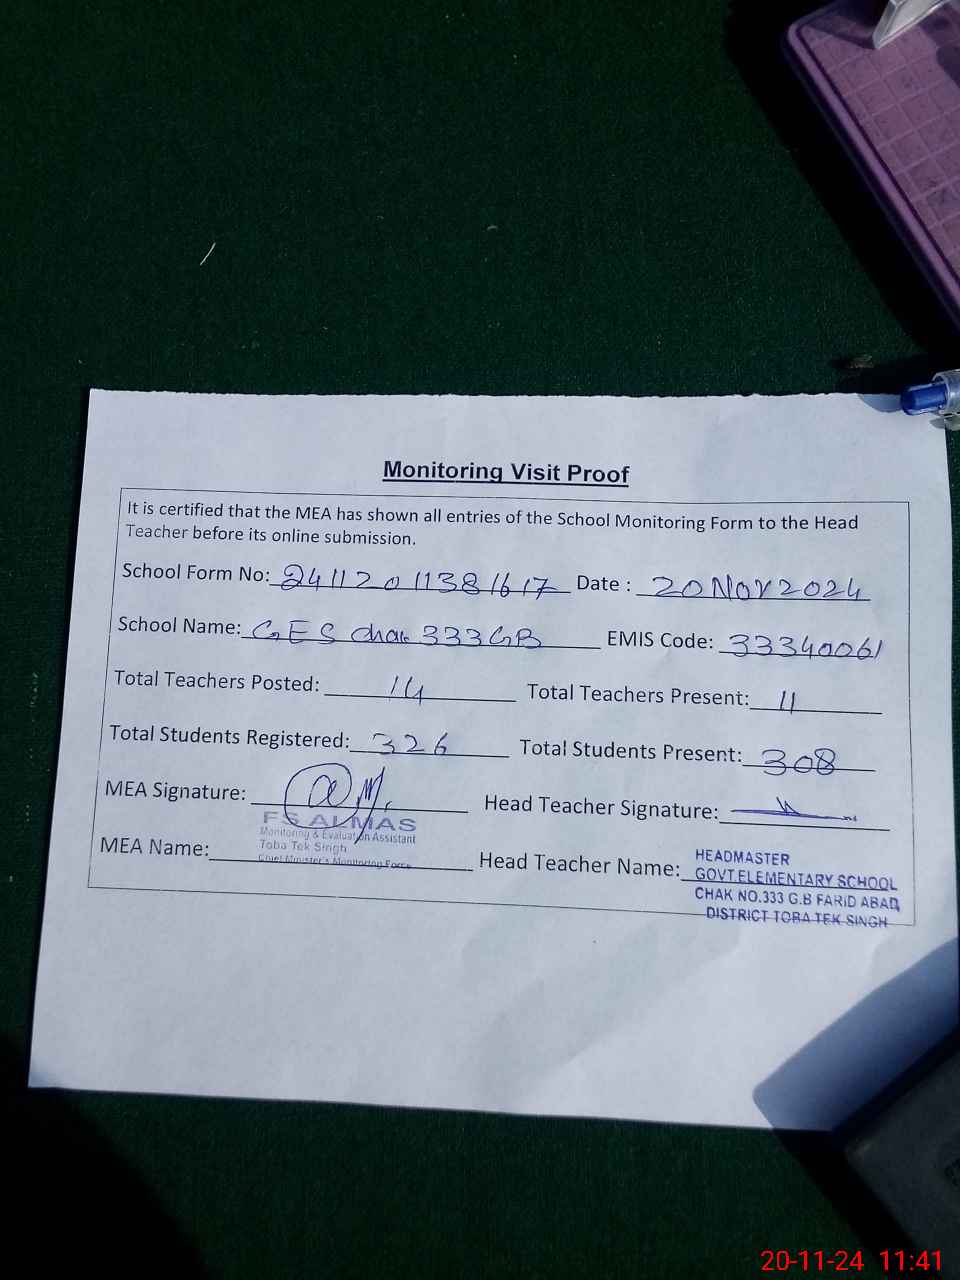 Monitoring Visit Proof
It is certified that the MEA has shown all entries of the School Monitoring Form to the Head
Teacher before its online submission.
School Form No: 24112011381617 Date : 20 Nov 2024
School Name: GES Chak 333GB EMIS Code: 33340061
Total Teachers Posted: 14 Total Teachers Present: 11
Total Students Registered: 326 Total Students Present: 308
MEA Signature: Head Teacher Signature:
FS ALMAS
Monitoring & Evaluation Assistant
Toba Tek Singh
Chief Minister's Monitoring Force
MEA Name: Head Teacher Name:
HEADMASTER
GOVT.ELEMENTARY SCHOOL
CHAK NO.333 G.B FARID ABAD
DISTRICT TOBA TEK SINGH
20-11-24 11:41